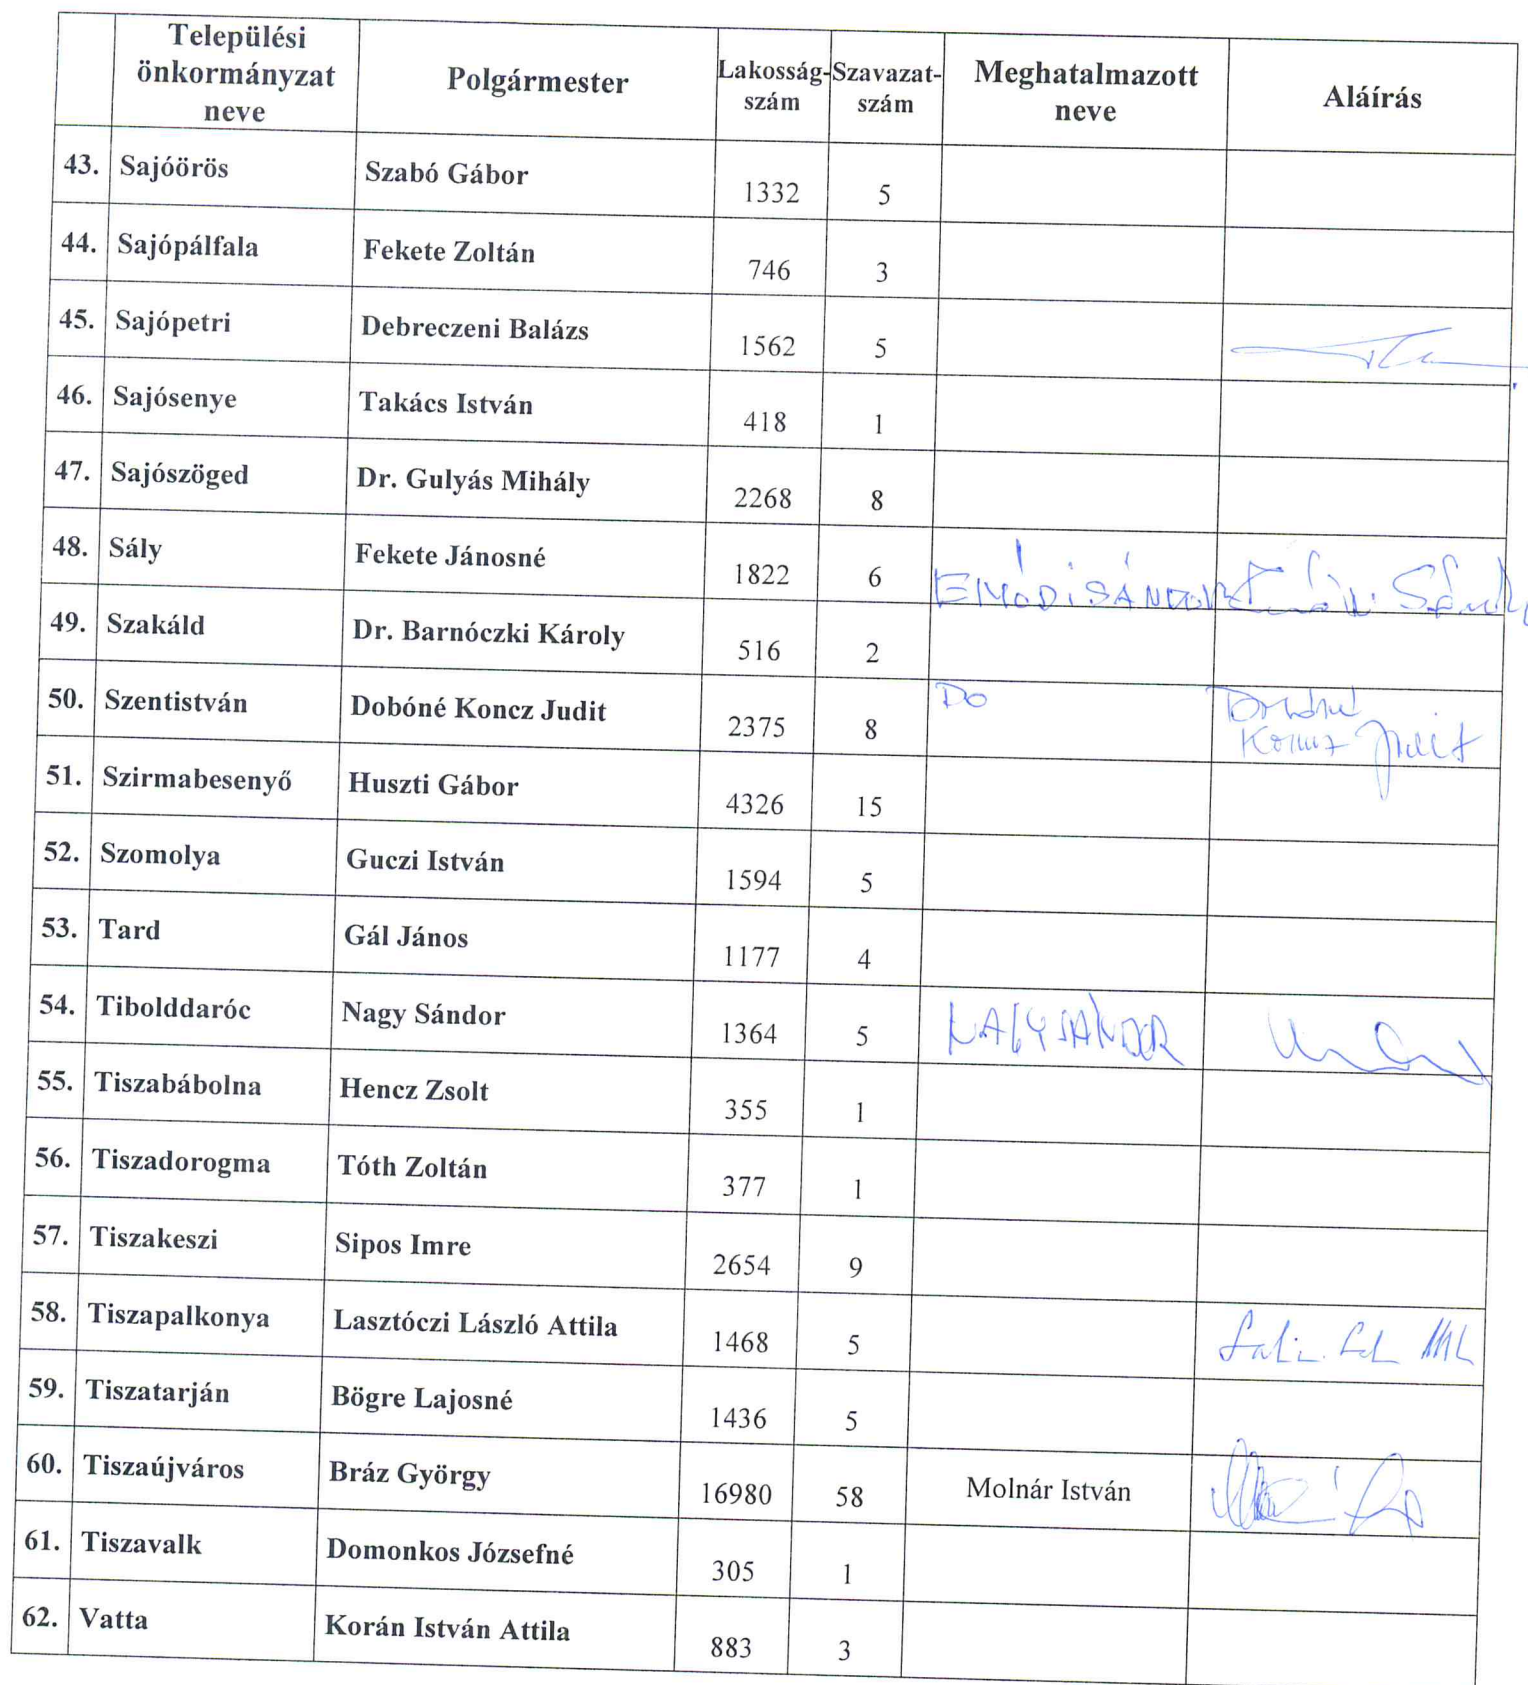 Települési önkormányzat neve Polgármester Lakosság-szám Szavazat-szám Meghatalmazott neve Aláírás
43. Sajóörös Szabó Gábor 1332 5
44. Sajópálfala Fekete Zoltán 746 3
45. Sajópetri Debreczeni Balázs 1562 5
46. Sajósenye Takács István 418 1
47. Sajószöged Dr. Gulyás Mihály 2268 8
48. Sály Fekete Jánosné 1822 6 EMŐDI SÁNDOR
49. Szakáld Dr. Barnóczki Károly 516 2
50. Szentistván Dobóné Koncz Judit 2375 8 Do Dobóné Koncz Judit
51. Szirmabesenyő Huszti Gábor 4326 15
52. Szomolya Guczi István 1594 5
53. Tard Gál János 1177 4
54. Tibolddaróc Nagy Sándor 1364 5 NAGY SÁNDOR
55. Tiszabábolna Hencz Zsolt 355 1
56. Tiszadorogma Tóth Zoltán 377 1
57. Tiszakeszi Sipos Imre 2654 9
58. Tiszapalkonya Lasztóczi László Attila 1468 5
59. Tiszatarján Bögre Lajosné 1436 5
60. Tiszaújváros Bráz György 16980 58 Molnár István
61. Tiszavalk Domonkos Józsefné 305 1
62. Vatta Korán István Attila 883 3